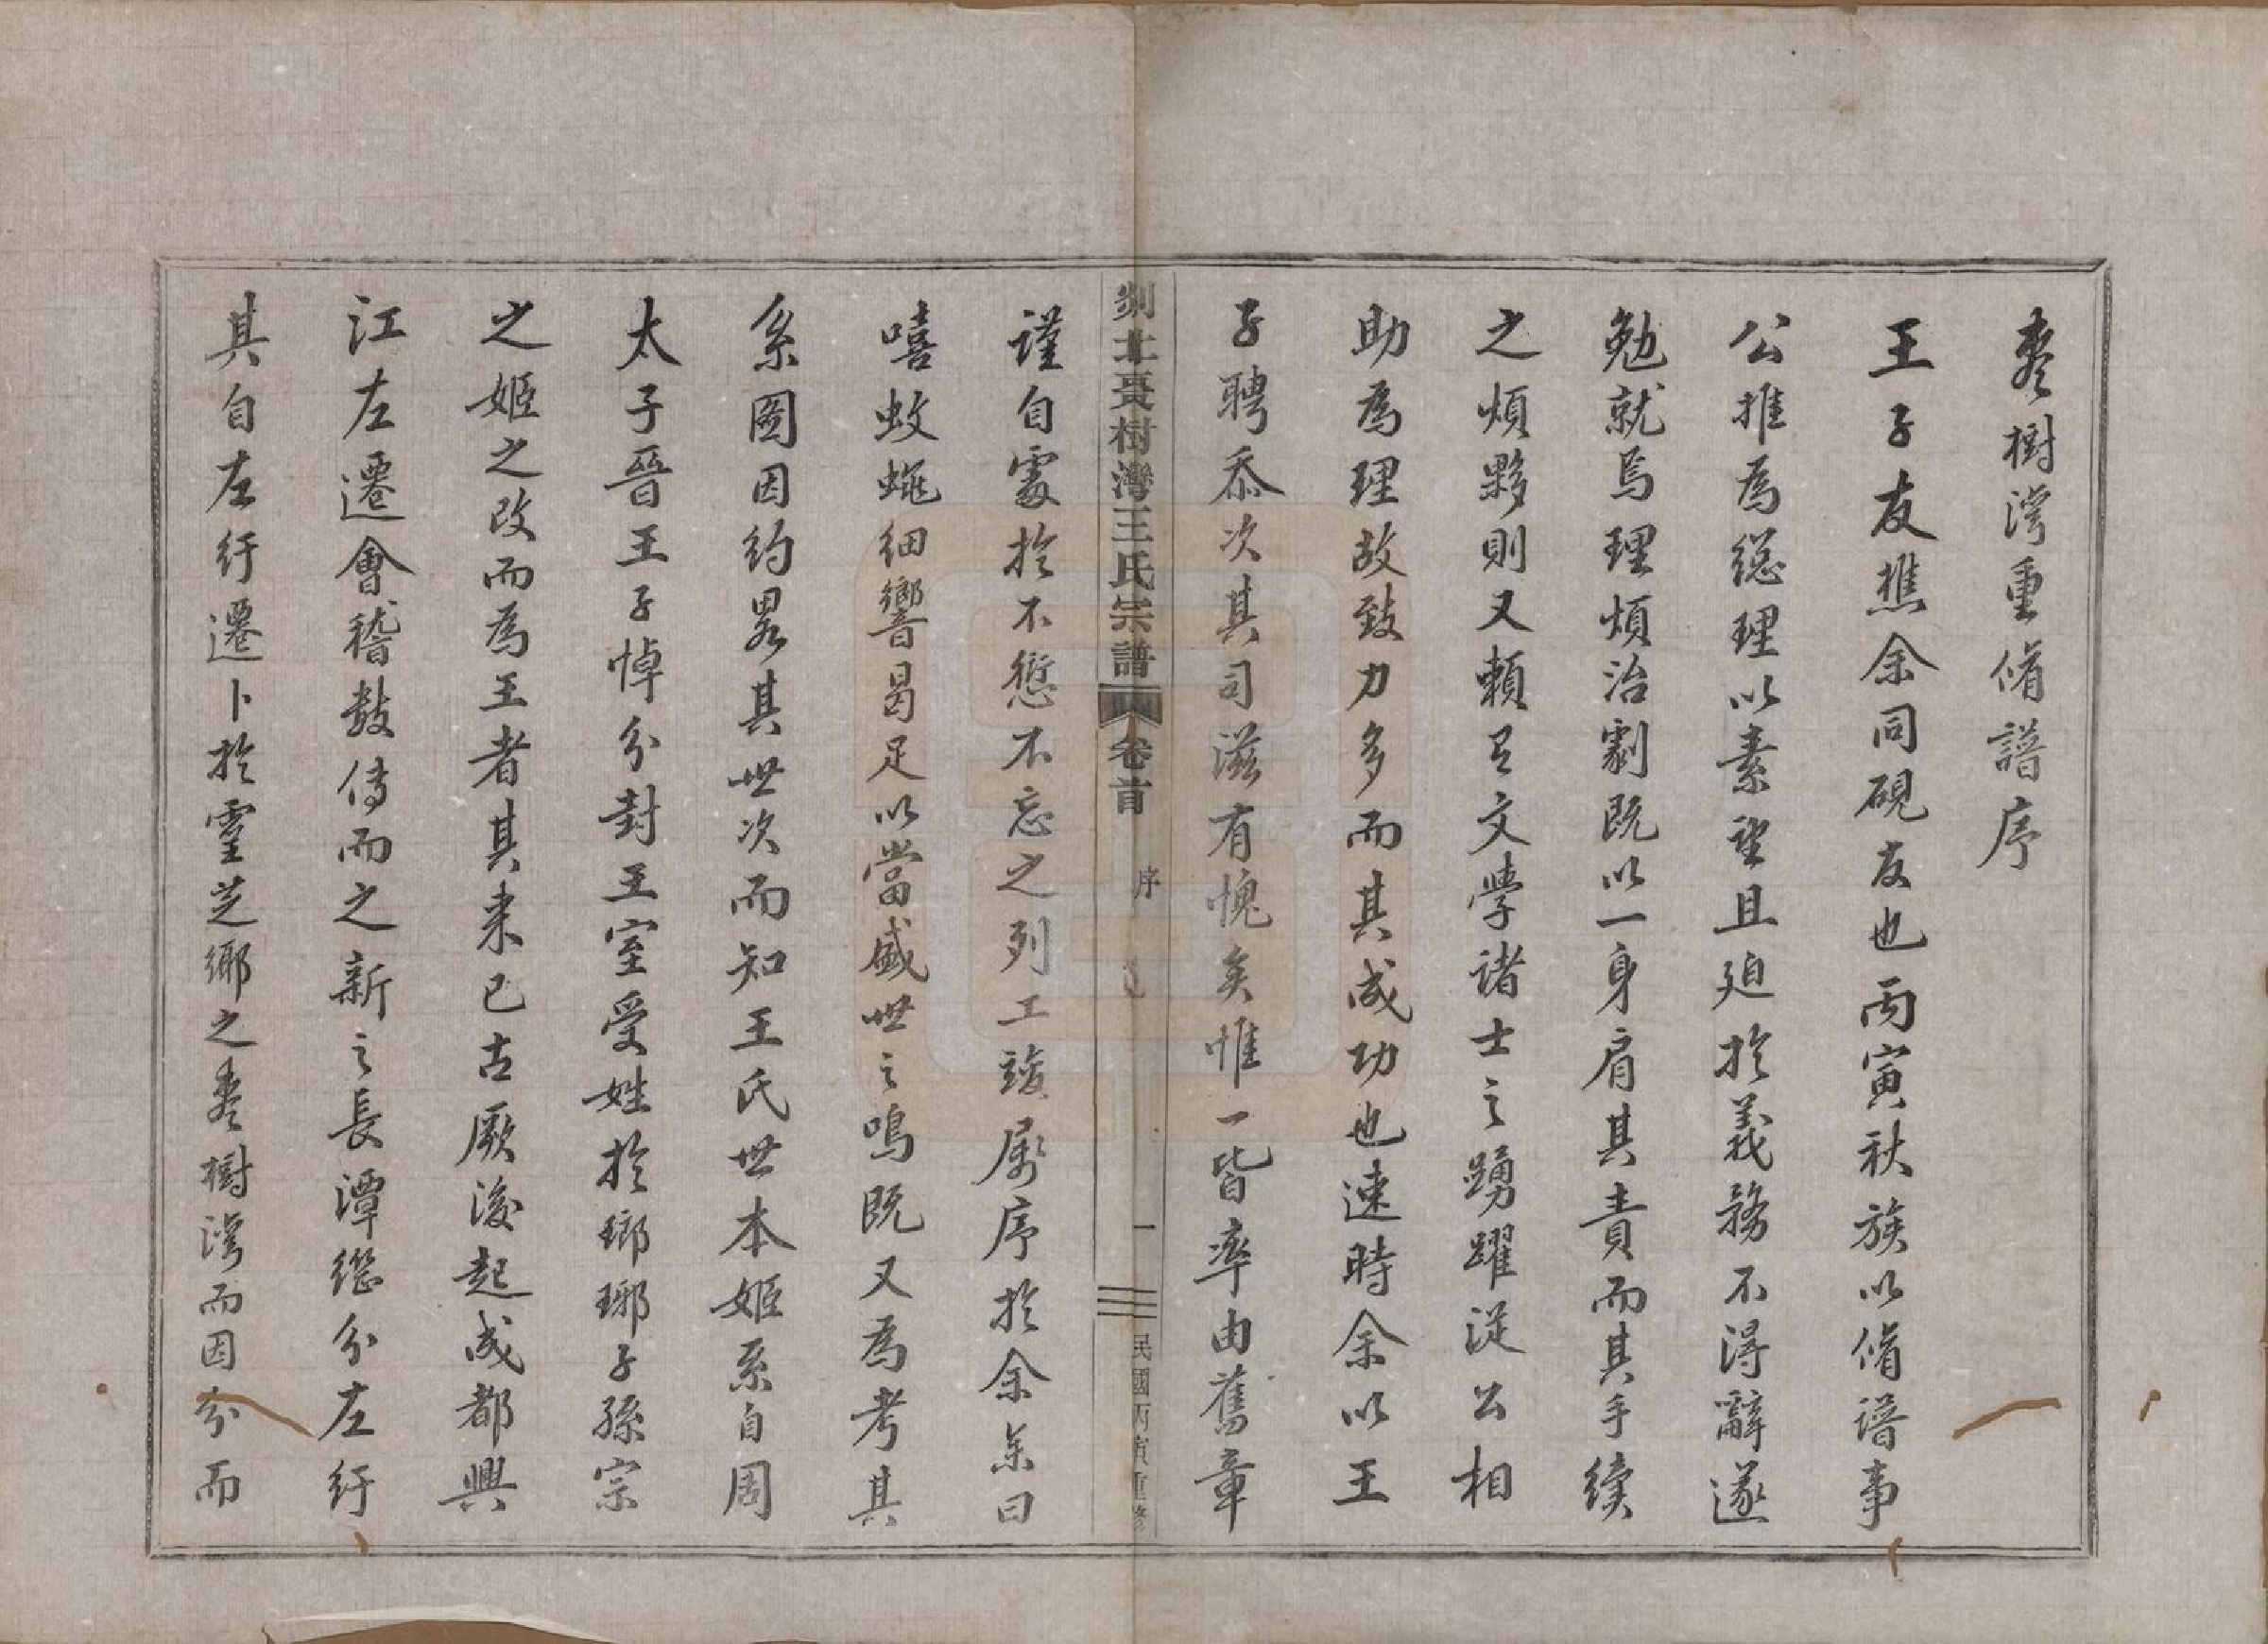 枣樹灣重脩譜序
王子友樵余同硯友也丙寅秋族以脩譜事
公推為總理以素望且廹於義務不得辭遂
勉就焉理煩治劇既以一身肩其責而其手續
之煩夥則又賴乎文學諸士之踴躍從公相
助為理故致力多而其成功也速時余以王
子聘忝次其司滋有愧矣惟一皆率由舊章
剡北棗樹灣王氏宗譜 卷首 序 一 民國丙寅重修
謹自寘於不愆不忘之列工竣屬序於余余曰
嘻蚊蠅細響曷足以當盛世之鳴既又為考其
系圖因約畧其世次而知王氏世本姬系自周
太子晉王子悼分封王室受姓於瑯琊子孫宗
之姬之改而為王者其来已古厥後起成都興
江左遷會稽數傳而之新之長潭継分左行
其自左行遷卜於靈芝鄉之枣樹灣而因分而